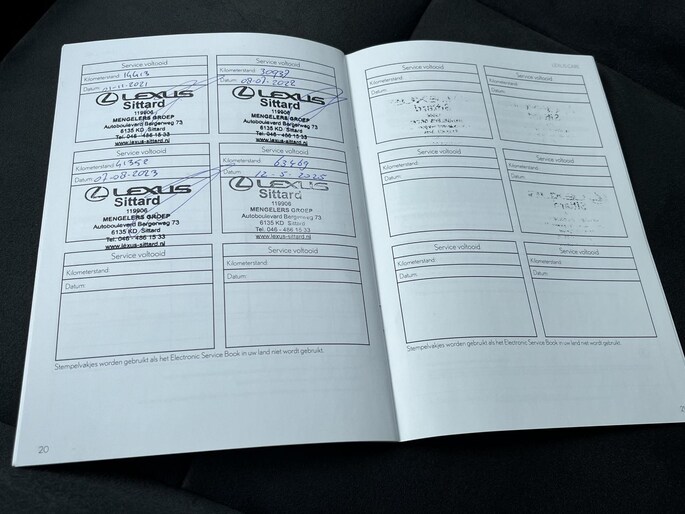 Service voltooid
Kilometerstand: 14413
Datum: 01-11-2021
LEXUS
Sittard
119906
MENGELERS GROEP
Autoboulevard Bergerweg 73
6135 KD Sittard
Tel. 046 - 456 15 33
www.lexus-sittard.nl
Service voltooid
Kilometerstand: 30937
Datum: 08-07-2022
LEXUS
Sittard
119906
MENGELERS GROEP
Autoboulevard Bergerweg 73
6135 KD Sittard
Tel. 046 - 456 15 33
www.lexus-sittard.nl
Service voltooid
Kilometerstand: 41352
Datum: 07-08-2023
LEXUS
Sittard
119906
MENGELERS GROEP
Autoboulevard Bergerweg 73
6135 KD Sittard
Tel. 046 - 456 15 33
www.lexus-sittard.nl
Service voltooid
Kilometerstand: 63469
Datum: 12-5-2025
LEXUS
Sittard
119906
MENGELERS GROEP
Autoboulevard Bergerweg 73
6135 KD Sittard
Tel. 046 - 456 15 33
www.lexus-sittard.nl
Service voltooid
Kilometerstand:
Datum:
Service voltooid
Kilometerstand:
Datum:
Stempelvakjes worden gebruikt als het Electronic Service Book in uw land niet wordt gebruikt.
20
Service voltooid
Kilometerstand:
Datum:
Service voltooid
Kilometerstand:
Datum:
Service voltooid
Kilometerstand:
Datum:
Service voltooid
Kilometerstand:
Datum:
Service voltooid
Kilometerstand:
Datum:
Service voltooid
Kilometerstand:
Datum:
Stempelvakjes worden gebruikt als het Electronic Service Book in uw land niet wordt gebruikt.